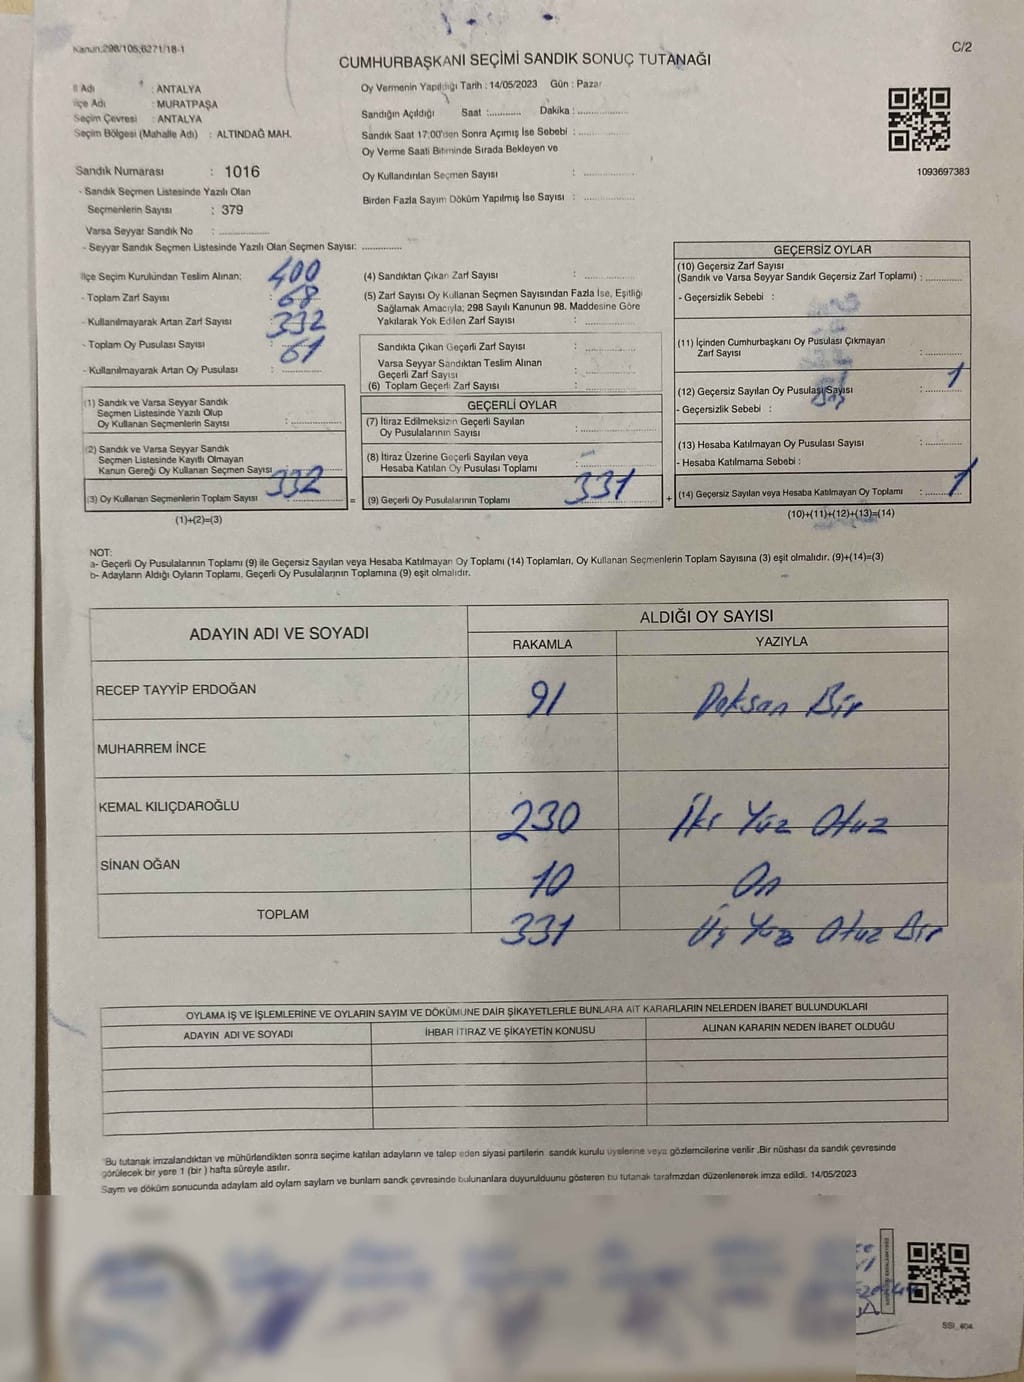 Kanun:298/105;6271/18-1
C/2
CUMHURBAŞKANI SEÇİMİ SANDIK SONUÇ TUTANAĞI
İl Adı : ANTALYA
İlçe Adı : MURATPAŞA
Seçim Çevresi : ANTALYA
Seçim Bölgesi (Mahalle Adı) : ALTINDAĞ MAH.
Oy Vermenin Yapıldığı Tarih : 14/05/2023 Gün : Pazar
Sandığın Açıldığı Saat :............ Dakika :................
Sandık Saat 17:00'den Sonra Açımış İse Sebebi : ................
Oy Verme Saati Bitiminde Sırada Bekleyen ve
Oy Kullandırılan Seçmen Sayısı : ................
Birden Fazla Sayım Döküm Yapılmış İse Sayısı : ................
1093697383
Sandık Numarası : 1016
- Sandık Seçmen Listesinde Yazılı Olan
Seçmenlerin Sayısı : 379
Varsa Seyyar Sandık No : ................
- Seyyar Sandık Seçmen Listesinde Yazılı Olan Seçmen Sayısı: .............
İlçe Seçim Kurulundan Teslim Alınan: 400
- Toplam Zarf Sayısı : 68
- Kullanılmayarak Artan Zarf Sayısı : 332
- Toplam Oy Pusulası Sayısı : 61
- Kullanılmayarak Artan Oy Pusulası : .............
(1) Sandık ve Varsa Seyyar Sandık
Seçmen Listesinde Yazılı Olup
Oy Kullanan Seçmenlerin Sayısı : ................
(2) Sandık ve Varsa Seyyar Sandık
Seçmen Listesinde Kayıtlı Olmayan
Kanun Gereği Oy Kullanan Seçmen Sayısı
(3) Oy Kullanan Seçmenlerin Toplam Sayısı : 332 =
(1)+(2)=(3)
(4) Sandıktan Çıkan Zarf Sayısı : ................
(5) Zarf Sayısı Oy Kullanan Seçmen Sayısından Fazla İse, Eşitliği
Sağlamak Amacıyla; 298 Sayılı Kanunun 98. Maddesine Göre
Yakılarak Yok Edilen Zarf Sayısı : ................
Sandıkta Çıkan Geçerli Zarf Sayısı : ................
Varsa Seyyar Sandıktan Teslim Alınan
Geçerli Zarf Sayısı : ................
(6) Toplam Geçerli Zarf Sayısı : ................
GEÇERLİ OYLAR
(7) İtiraz Edilmeksizin Geçerli Sayılan
Oy Pusulalarının Sayısı : ................
(8) İtiraz Üzerine Geçerli Sayılan veya
Hesaba Katılan Oy Pusulası Toplamı : ................
(9) Geçerli Oy Pusulalarının Toplamı : 331 +
GEÇERSİZ OYLAR
(10) Geçersiz Zarf Sayısı
(Sandık ve Varsa Seyyar Sandık Geçersiz Zarf Toplamı) : ............
- Geçersizlik Sebebi :
(11) İçinden Cumhurbaşkanı Oy Pusulası Çıkmayan
Zarf Sayısı : ............
(12) Geçersiz Sayılan Oy Pusulası Sayısı : 1
- Geçersizlik Sebebi :
(13) Hesaba Katılmayan Oy Pusulası Sayısı : ............
- Hesaba Katılmama Sebebi :
(14) Geçersiz Sayılan veya Hesaba Katılmayan Oy Toplamı : 1
(10)+(11)+(12)+(13)=(14)
NOT:
a- Geçerli Oy Pusulalarının Toplamı (9) ile Geçersiz Sayılan veya Hesaba Katılmayan Oy Toplamı (14) Toplamları, Oy Kullanan Seçmenlerin Toplam Sayısına (3) eşit olmalıdır. (9)+(14)=(3)
b- Adayların Aldığı Oyların Toplamı, Geçerli Oy Pusulalarının Toplamına (9) eşit olmalıdır.
ADAYIN ADI VE SOYADI
ALDIĞI OY SAYISI
RAKAMLA YAZIYLA
RECEP TAYYİP ERDOĞAN 91 Doksan Bir
MUHARREM İNCE
KEMAL KILIÇDAROĞLU 230 İki Yüz Otuz
SİNAN OĞAN 10 On
TOPLAM 331 Üç Yüz Otuz Bir
OYLAMA İŞ VE İŞLEMLERİNE VE OYLARIN SAYIM VE DÖKÜMÜNE DAİR ŞİKAYETLERLE BUNLARA AİT KARARLARIN NELERDEN İBARET BULUNDUKLARI
ADAYIN ADI VE SOYADI İHBAR İTİRAZ VE ŞİKAYETİN KONUSU ALINAN KARARIN NEDEN İBARET OLDUĞU
Bu tutanak imzalandıktan ve mühürlendikten sonra seçime katılan adayların ve talep eden siyasi partilerin sandık kurulu üyelerine veya gözlemcilerine verilir .Bir nüshası da sandık çevresinde
görülecek bir yere 1 (bir ) hafta süreyle asılır.
Saym ve döküm sonucunda adaylam ald oylam saylam ve bunlam sandk çevresinde bulunanlara duyurulduunu gösteren bu tutanak tarafmzdan düzenlenerek imza edildi. 14/05/2023
SSI_404